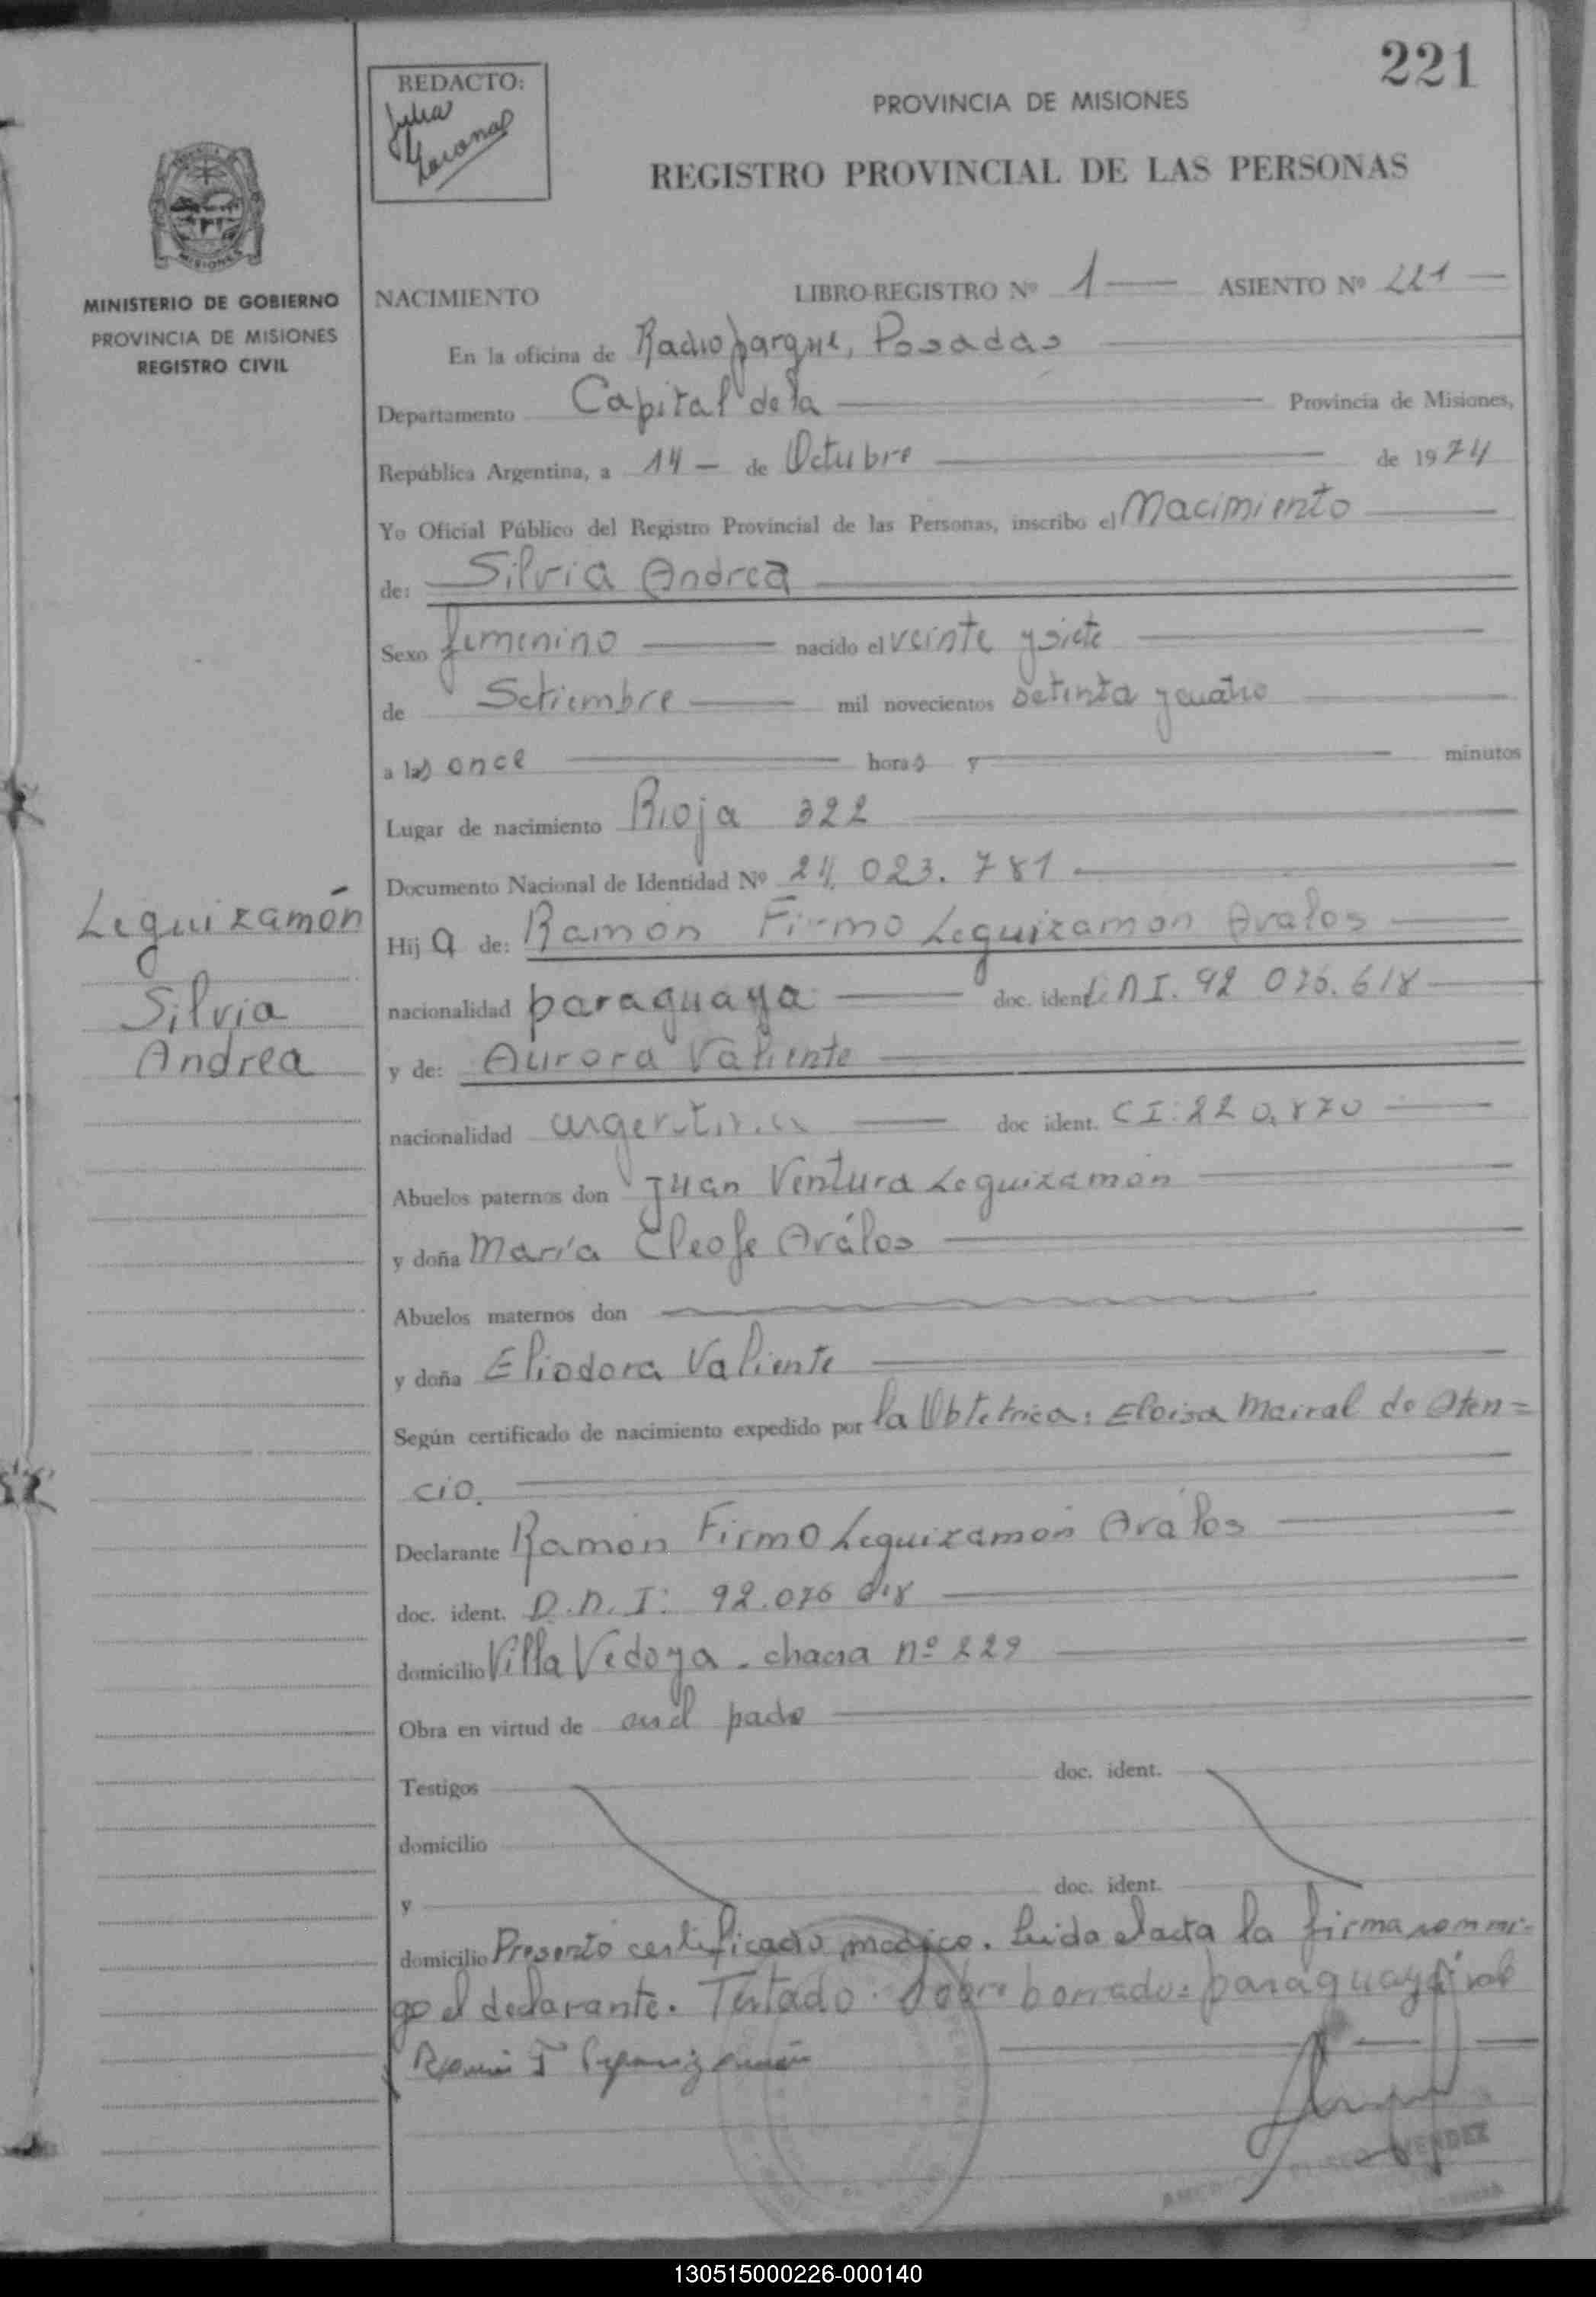 221
REDACTO:
Julia
PROVINCIA DE MISIONES
REGISTRO PROVINCIAL DE LAS PERSONAS
MISIONES
MINISTERIO DE GOBIERNO
PROVINCIA DE MISIONES
REGISTRO CIVIL
NACIMIENTO LIBRO-REGISTRO Nº 1 ASIENTO Nº 221
En la oficina de Radioparque, Posadas
Departamento Capital de la Provincia de Misiones,
República Argentina, a 14 de Octubre de 1974
Yo Oficial Público del Registro Provincial de las Personas, inscribo el Nacimiento
de: Silvia Andrea
Sexo femenino nacido el veinte y siete
de Setiembre mil novecientos setenta y cuatro
a las once horas y minutos
Lugar de nacimiento Rioja 322
Documento Nacional de Identidad Nº 24.023.781
Leguizamón
Silvia
Andrea
Hija de: Ramón Firmo Leguizamon Avalos
nacionalidad paraguaya doc. ident. D.N.I. 92 076.618
y de: Aurora Valiente
nacionalidad argentina doc ident. C I: 220,870
Abuelos paternos don Juan Ventura Leguizamón
y doña María Cleofe Aválos
Abuelos maternos don
y doña Eliodora Valiente
Según certificado de nacimiento expedido por la Obtetrica: Eloisa Mairal de Aten=
cio.
Declarante Ramón Firmo Leguizamón Aválos
doc. ident. D.N.I: 92.076 618
domicilio Villa Vedoya - chacra nº 229
Obra en virtud de ser el padre
Testigos doc. ident.
domicilio
y doc. ident.
domicilio Presentó certificado médico. Leida el acta la firma conmi-
go el declarante. Testado. Sobre borrado: paraguaya: vale
Ramón F Leguizamón
MENDEZ
130515000226-000140